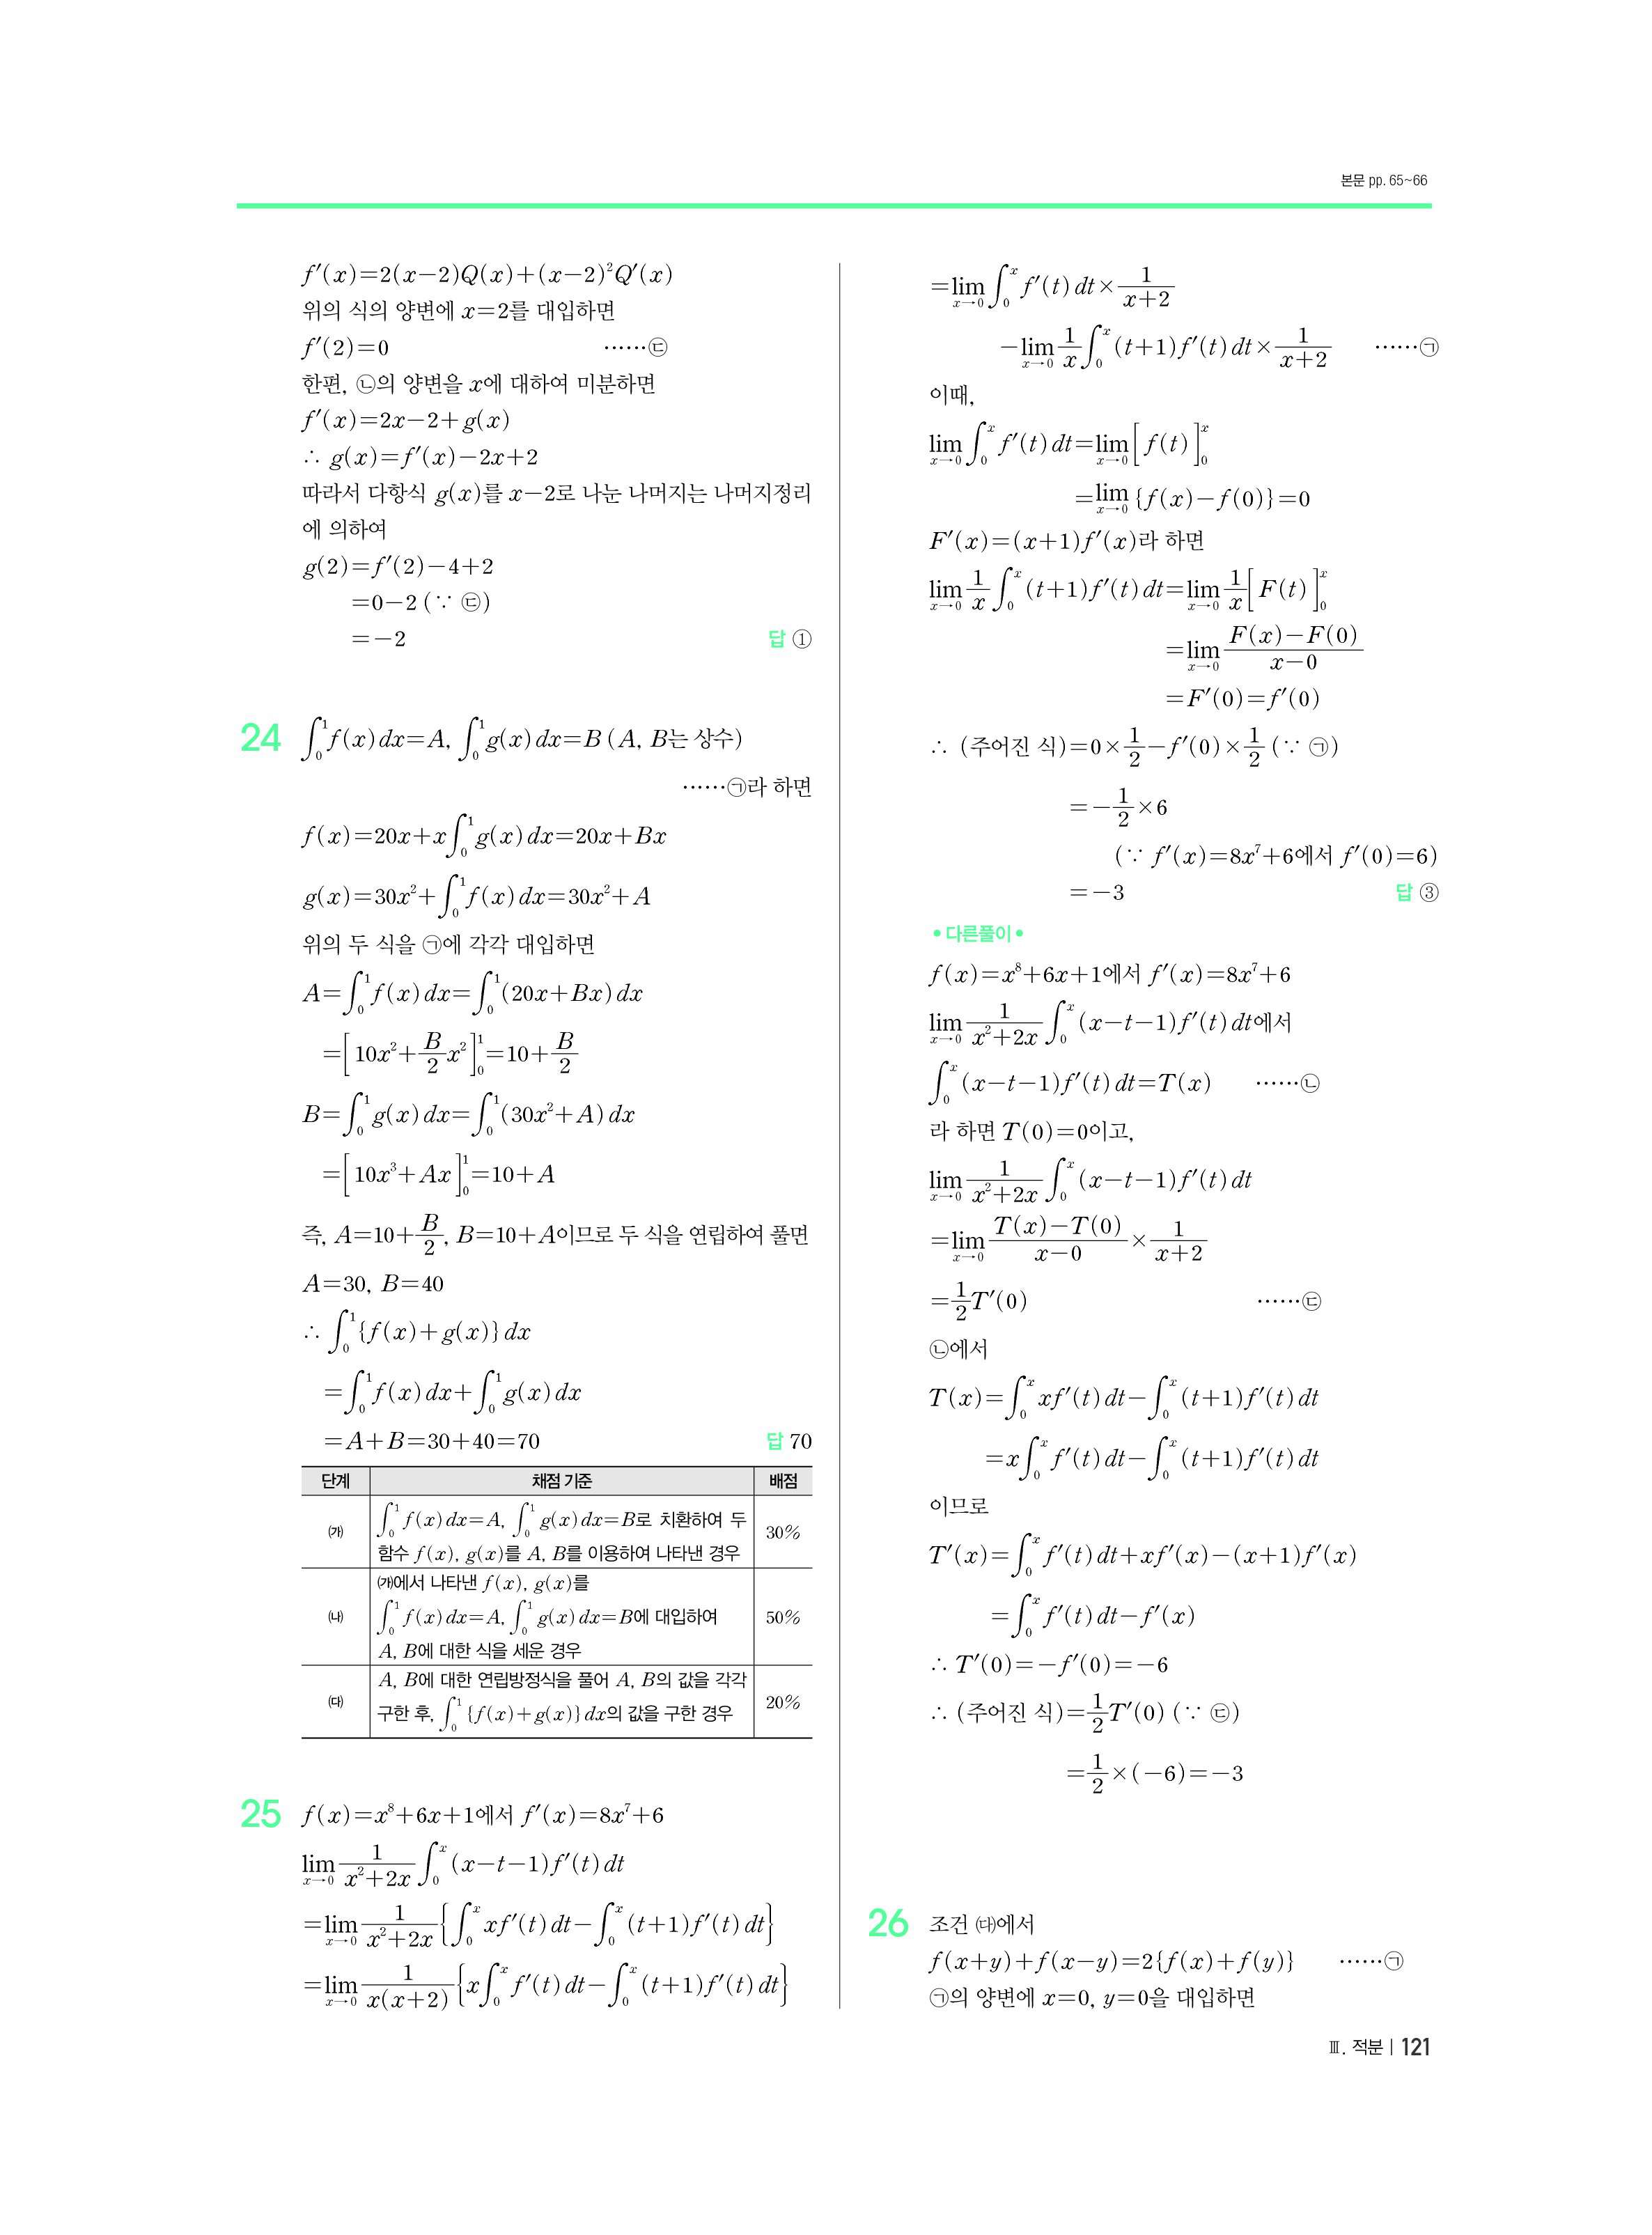 본문 pp. 65~66
f′(x)=2(x−2)Q(x)+(x−2)²Q′(x)
위의 식의 양변에 x=2를 대입하면
f′(2)=0 ……㉢
한편, ㉡의 양변을 x에 대하여 미분하면
f′(x)=2x−2+g(x)
∴ g(x)=f′(x)−2x+2
따라서 다항식 g(x)를 x−2로 나눈 나머지는 나머지정리
에 의하여
g(2)=f′(2)−4+2
=0−2 (∵ ㉢)
=−2 답 ①
24 ∫₀¹ f(x)dx=A, ∫₀¹ g(x)dx=B (A, B는 상수)
……㉠라 하면
f(x)=20x+x∫₀¹ g(x)dx=20x+Bx
g(x)=30x²+∫₀¹ f(x)dx=30x²+A
위의 두 식을 ㉠에 각각 대입하면
A=∫₀¹ f(x)dx=∫₀¹ (20x+Bx)dx
=[10x²+B/2 x²]₀¹=10+B/2
B=∫₀¹ g(x)dx=∫₀¹ (30x²+A)dx
=[10x³+Ax]₀¹=10+A
즉, A=10+B/2, B=10+A이므로 두 식을 연립하여 풀면
A=30, B=40
∴ ∫₀¹ {f(x)+g(x)}dx
=∫₀¹ f(x)dx+∫₀¹ g(x)dx
=A+B=30+40=70 답 70
단계 채점 기준 배점
㈎ ∫₀¹ f(x)dx=A, ∫₀¹ g(x)dx=B로 치환하여 두
함수 f(x), g(x)를 A, B를 이용하여 나타낸 경우 30%
㈎에서 나타낸 f(x), g(x)를
㈏ ∫₀¹ f(x)dx=A, ∫₀¹ g(x)dx=B에 대입하여 50%
A, B에 대한 식을 세운 경우
A, B에 대한 연립방정식을 풀어 A, B의 값을 각각
㈐ 구한 후, ∫₀¹ {f(x)+g(x)}dx의 값을 구한 경우 20%
25 f(x)=x⁸+6x+1에서 f′(x)=8x⁷+6
lim_{x→0} 1/(x²+2x) ∫₀ˣ (x−t−1)f′(t)dt
=lim_{x→0} 1/(x²+2x) {∫₀ˣ xf′(t)dt−∫₀ˣ (t+1)f′(t)dt}
=lim_{x→0} 1/(x(x+2)) {x∫₀ˣ f′(t)dt−∫₀ˣ (t+1)f′(t)dt}
=lim_{x→0} ∫₀ˣ f′(t)dt×1/(x+2)
−lim_{x→0} 1/x ∫₀ˣ (t+1)f′(t)dt×1/(x+2) ……㉠
이때,
lim_{x→0} ∫₀ˣ f′(t)dt=lim_{x→0} [f(t)]₀ˣ
=lim_{x→0} {f(x)−f(0)}=0
F′(x)=(x+1)f′(x)라 하면
lim_{x→0} 1/x ∫₀ˣ (t+1)f′(t)dt=lim_{x→0} 1/x [F(t)]₀ˣ
=lim_{x→0} (F(x)−F(0))/(x−0)
=F′(0)=f′(0)
∴ (주어진 식)=0×1/2−f′(0)×1/2 (∵ ㉠)
=−1/2×6
(∵ f′(x)=8x⁷+6에서 f′(0)=6)
=−3 답 ③
•다른풀이•
f(x)=x⁸+6x+1에서 f′(x)=8x⁷+6
lim_{x→0} 1/(x²+2x) ∫₀ˣ (x−t−1)f′(t)dt에서
∫₀ˣ (x−t−1)f′(t)dt=T(x) ……㉡
라 하면 T(0)=0이고,
lim_{x→0} 1/(x²+2x) ∫₀ˣ (x−t−1)f′(t)dt
=lim_{x→0} (T(x)−T(0))/(x−0)×1/(x+2)
=1/2 T′(0) ……㉢
㉡에서
T(x)=∫₀ˣ xf′(t)dt−∫₀ˣ (t+1)f′(t)dt
=x∫₀ˣ f′(t)dt−∫₀ˣ (t+1)f′(t)dt
이므로
T′(x)=∫₀ˣ f′(t)dt+xf′(x)−(x+1)f′(x)
=∫₀ˣ f′(t)dt−f′(x)
∴ T′(0)=−f′(0)=−6
∴ (주어진 식)=1/2 T′(0) (∵ ㉢)
=1/2×(−6)=−3
26 조건 ㈐에서
f(x+y)+f(x−y)=2{f(x)+f(y)} ……㉠
㉠의 양변에 x=0, y=0을 대입하면
Ⅲ. 적분 | 121